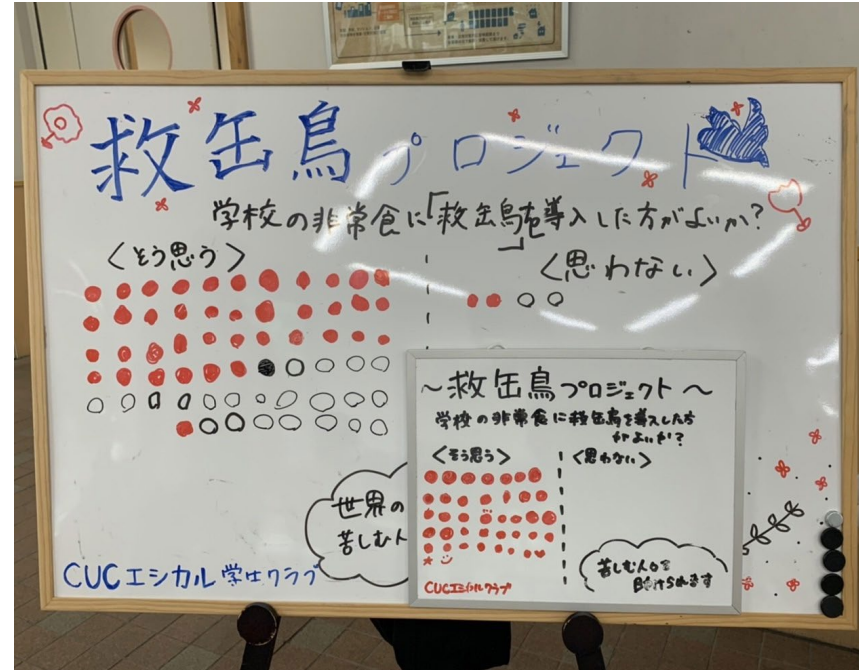 救缶鳥プロジェクト
学校の非常食に「救缶鳥」を導入した方がよいか?
<そう思う>
<思わない>
世界の
苦しむ人
CUCエシカル学生クラブ
~救缶鳥プロジェクト~
学校の非常食に救缶鳥を導入した方
がよいか?
<そう思う>
<思わない>
苦しむ人々を
助けられます
CUCエシカルクラブ